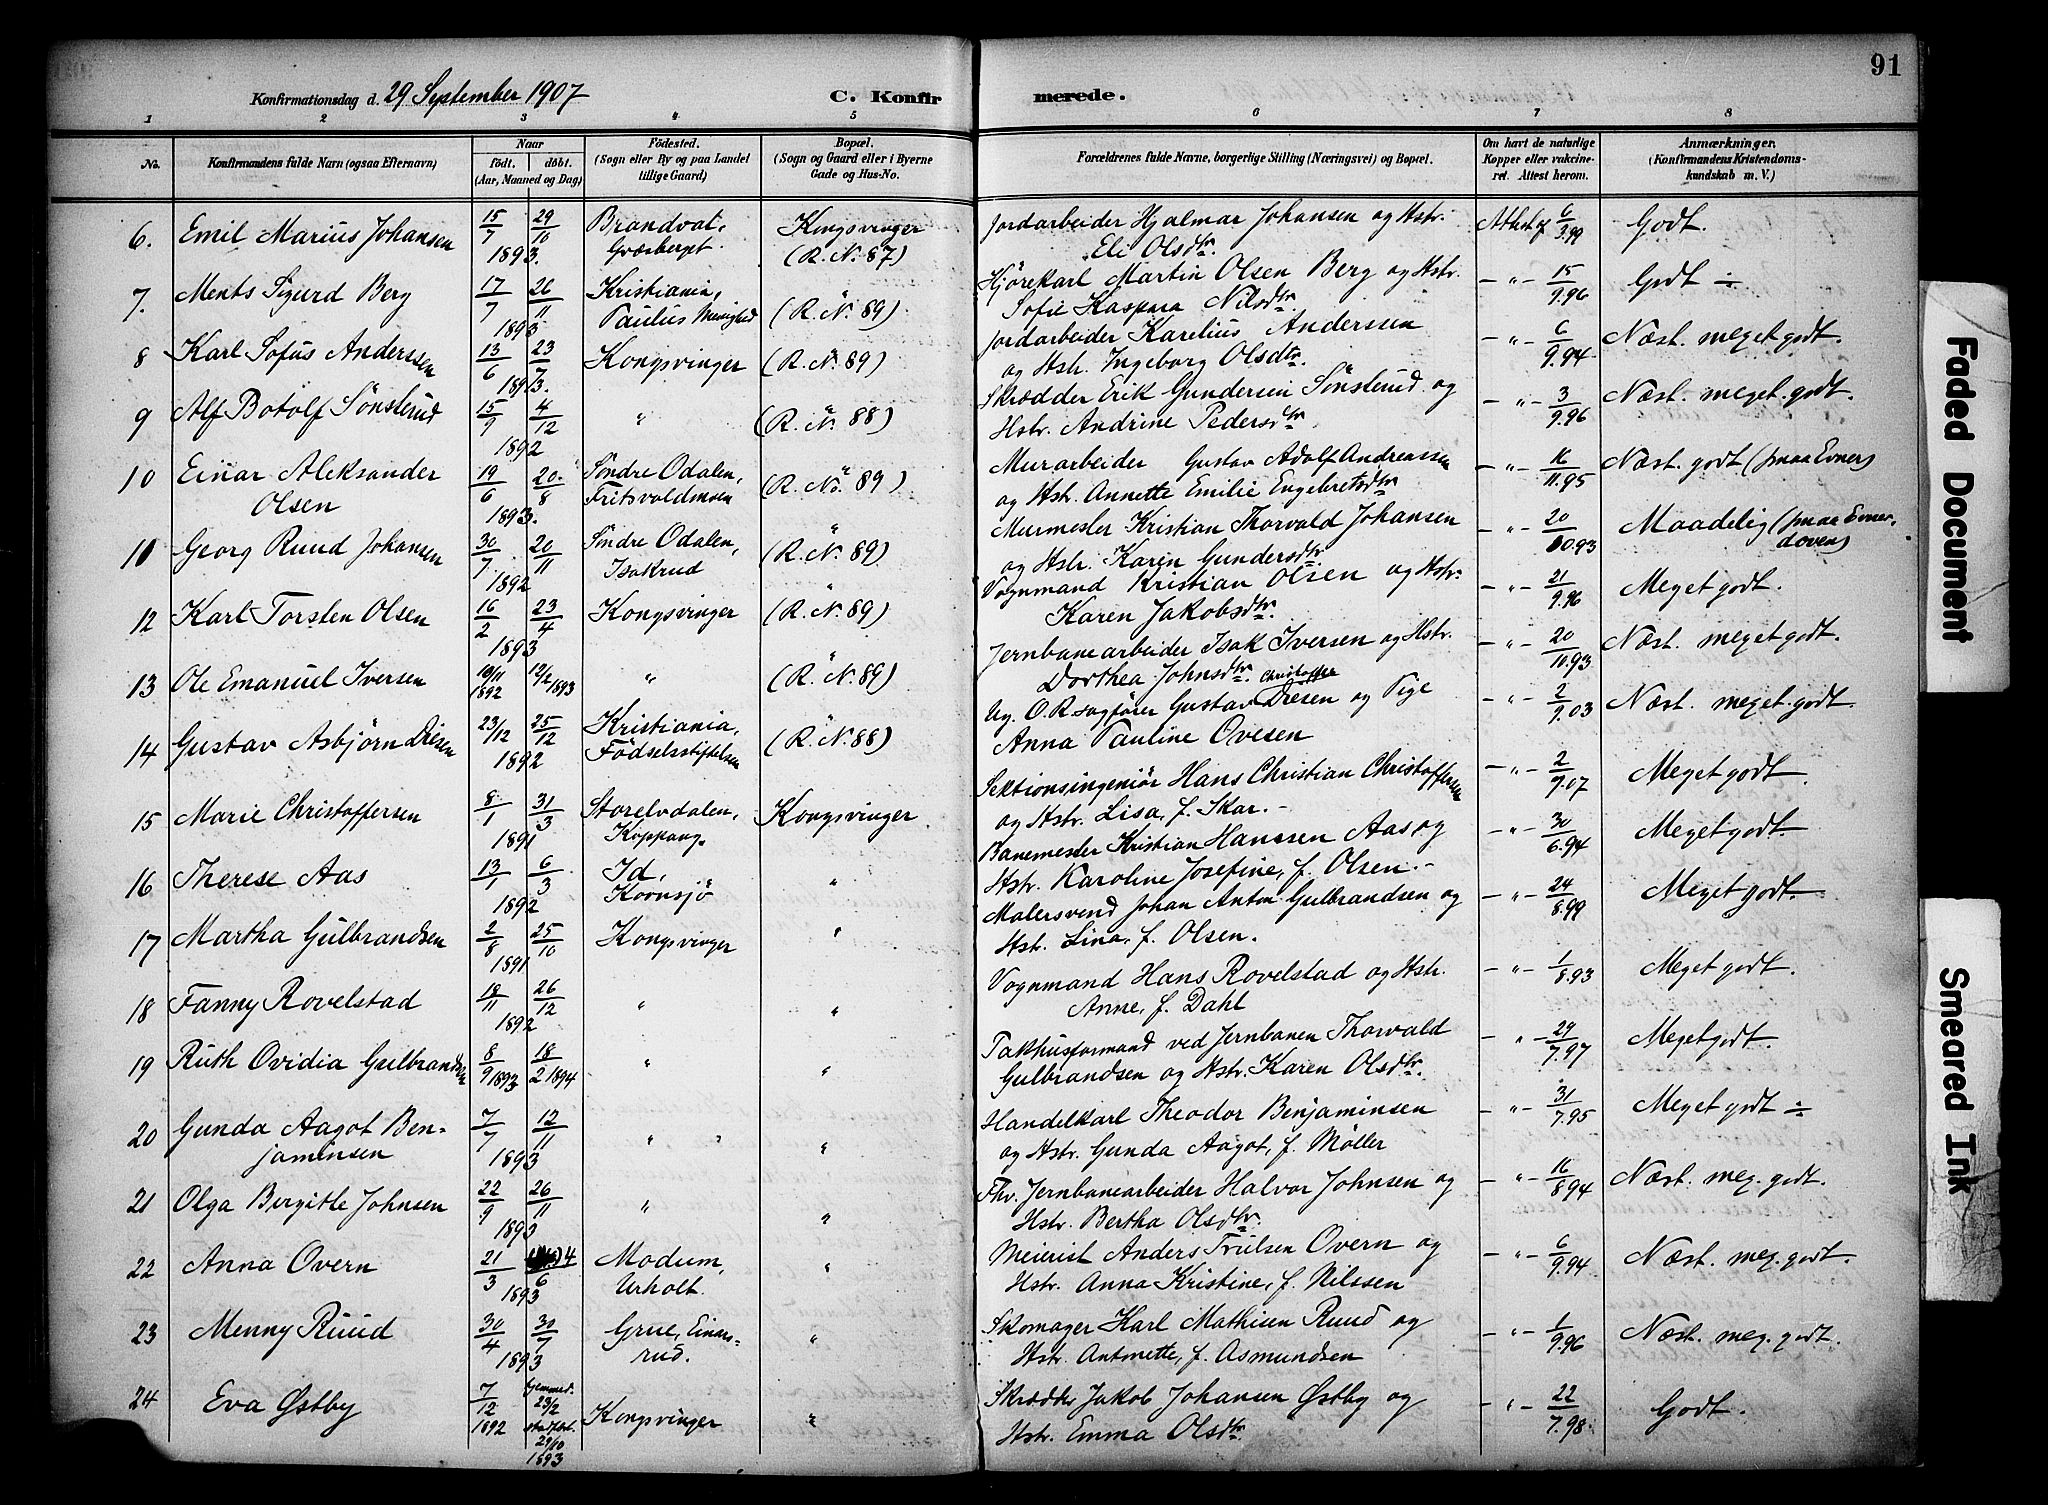 91
Konfirmationsdag d. 29 September 1907 C. Konfirmerede.
1 2 3 4 5 6 7 8
No. Konfirmandens fulde Navn (ogsaa Efternavn) Naar födt. döbt. (Aar, Maaned og Dag) Födested. (Sogn eller By og paa Landet tillige Gaard) Bopæl. (Sogn og Gaard eller i Byerne Gade og Hus-No. Forældrenes fulde Navne, borgerlige Stilling (Næringsvei) og Bopæl. Om havt de naturlige Kopper eller vakcineret. Attest herom. Anmærkninger. (Konfirmandens Kristendomskundskab m. V.)
6. Emil Marius Johansen 15/7 29/10 1893. Brandval, Græsberget. Kongsvinger (R. N. 87) Jordarbeider Hjalmar Johansen og Hstr. Eli Olsdtr. Attest af 6/3.99 Godt.
7. Ments Sigurd Berg 17/7 26/11 1893 Kristiania, Paulus Menighed " (R. N. 89) Hjørekarl Martin Olsen Berg og Hstr. Sofie Kaspara Nilsdtr. - " - 15/9.96 Godt ÷
8 Karl Sofus Anderssen 13/6 23/7 1893. Kongsvinger (R. N. 89) Jordarbeider Karelius Anderssen og Hstr. Ingeborg Olsdtr. - " - 6/9.94 Næst. meget godt.
9 Alf Botolf Sönsterud 15/9 4/12 1892 " (R. N. 88) Skrædder Erik Gundersen Sönsterud og Hstr. Andrine Pedersdtr. - " - 3/9.96 Næst. meget godt.
10 Einar Aleksander Olsen 19/6 20/8 1893. Söndre Odalen, Fritsvoldmoen " (R. No. 89) Murarbeider Gustav Adolf Andreassen og Hstr. Annette Emilie Engebretsdtr - " - 16/11.95 Næst. godt (smaa Evner)
10 Georg Ruud Johansen 30/7 20/11 1892 Söndre Odalen, Isakrud " (R. N. 89) Murmester Kristian Thorvald Johansen og Hstr. Karen Gundersdtr. - " - 20/10.93 Maadelig (smaa Evner, doven)
12 Karl Torsten Olsen 16/2 23/4 1893 Kongsvinger " (R. N. 89) Vognmand Kristian Olsen og Hstr. Karen Jakobsdtr. - " - 21/9.96 Meget godt.
13 Ole Emanuel Iversen 19/11 1892 12/2 1893 " " (R. N. 89) Jernbanearbeider Isak Iversen og Hstr. Dorthea Johnsdtr. - " - 20/11.93 Næst. meget godt.
14 Gustav Asbjörn Diesen 23/12 25/12 1892 Kristiania, Födselsstiftelsen " (R. N. 88) Ug. O. R. sagförer Gustav Christoffer Diesen og Pige Anna Pauline Ovesen - " - 2/9.03 Næst. meget godt.
15 Marie Christoffersen 8/1 31/3 1891 Storelvdalen, Koppang. Kongsvinger Sektionsingeniör Hans Christian Christoffersen og Hstr. Lisa, f. Skar. - - " - 2/7.07 Meget godt.
16 Therese Aas 13/1 6/3 1892 Id, Kornsjö " Banemester Kristian Hanssen Aas og Hstr. Karoline Josefine, f. Olsen. - - " - 30/6.94 Meget godt.
17 Martha Gulbrandsen 2/8 25/10 1891 Kongsvinger " Malersvend Johan Anton Gulbrandsen og Hstr. Lina, f. Olsen. - " - 24/8.99 Meget godt.
18 Fanny Rovelstad 18/11 26/12 1892 " " Vognmand Hans Rovelstad og Hstr. Anne, f. Dahl - " - 1/8.93 Meget godt.
19 Ruth Ovidia Gulbrandsen 8/9 1893 18/2 1894 " " Pakhusformand ved Jernbanen Thorvald Gulbrandsen og Hstr. Karen Olsdtr. - " - 29/7.97 Meget godt.
20 Gunda Aagot Benjaminsen 7/7 12/11 1893 " " " Handelkarl Theodor Benjaminsen og Hstr. Gunda Aagot, f. Møller - " - 31/7.95 Meget godt ÷
21 Olga Bergitte Johnsen 22/9 26/11 1893 " " Fhv. Jernbanearbeider Halvor Johnsen og Hstr. Bertha Olsdtr. - " - 16/8.94 Næst. meg. godt.
22 Anna Overn 21/3 4/6 1893 Modum, Urholt. " Meierist Anders Trulsen Overn og Hstr. Anna Kristine, f. Nilssen - " - 6/9.94 Næst. meg. godt.
23 Menny Ruud 30/4 30/7 1893 Grue, Einarsrud. " Skomager Karl Mathisen Ruud og Hstr. Antonette, f. Asmundsen - " - 1/9.96 Næst. meg. godt.
24 Eva Østby 7/12 1892 hjemmed. 23/2 stadfæst. 29/10 1893 Kongsvinger " Skrædder Jakob Johansen Østby og Hstr. Emma Olsdtr. - " - 22/7.98. Godt.
Faded Document
Smeared Ink